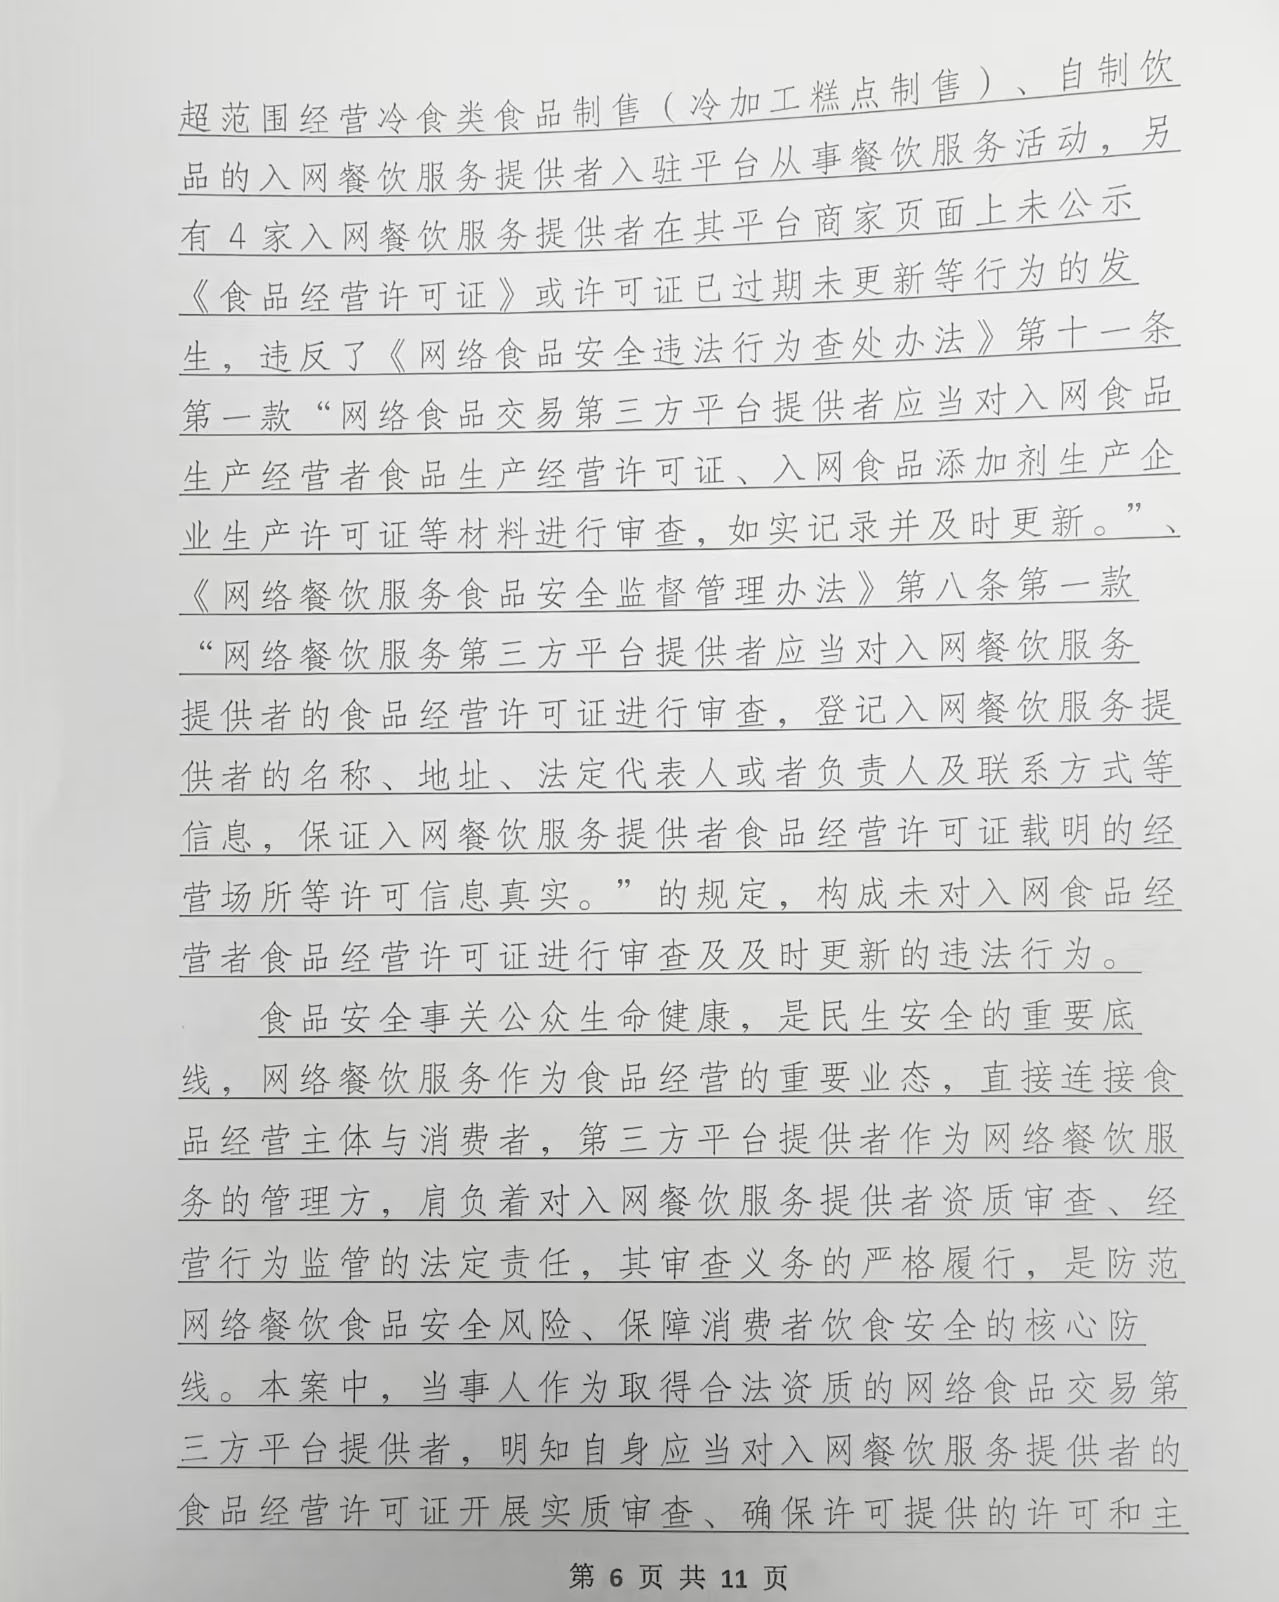 超范围经营冷食类食品制售（冷加工糕点制售）、自制饮
品的入网餐饮服务提供者入驻平台从事餐饮服务活动，另
有 4 家入网餐饮服务提供者在其平台商家页面上未公示
《食品经营许可证》或许可证已过期未更新等行为的发
生，违反了《网络食品安全违法行为查处办法》第十一条
第一款“网络食品交易第三方平台提供者应当对入网食品
生产经营者食品生产经营许可证、入网食品添加剂生产企
业生产许可证等材料进行审查，如实记录并及时更新。”、
《网络餐饮服务食品安全监督管理办法》第八条第一款
“网络餐饮服务第三方平台提供者应当对入网餐饮服务
提供者的食品经营许可证进行审查，登记入网餐饮服务提
供者的名称、地址、法定代表人或者负责人及联系方式等
信息，保证入网餐饮服务提供者食品经营许可证载明的经
营场所等许可信息真实。”的规定，构成未对入网食品经
营者食品经营许可证进行审查及及时更新的违法行为。
食品安全事关公众生命健康，是民生安全的重要底
线，网络餐饮服务作为食品经营的重要业态，直接连接食
品经营主体与消费者，第三方平台提供者作为网络餐饮服
务的管理方，肩负着对入网餐饮服务提供者资质审查、经
营行为监管的法定责任，其审查义务的严格履行，是防范
网络餐饮食品安全风险、保障消费者饮食安全的核心防
线。本案中，当事人作为取得合法资质的网络食品交易第
三方平台提供者，明知自身应当对入网餐饮服务提供者的
食品经营许可证开展实质审查、确保许可提供的许可和主
第 6 页 共 11 页